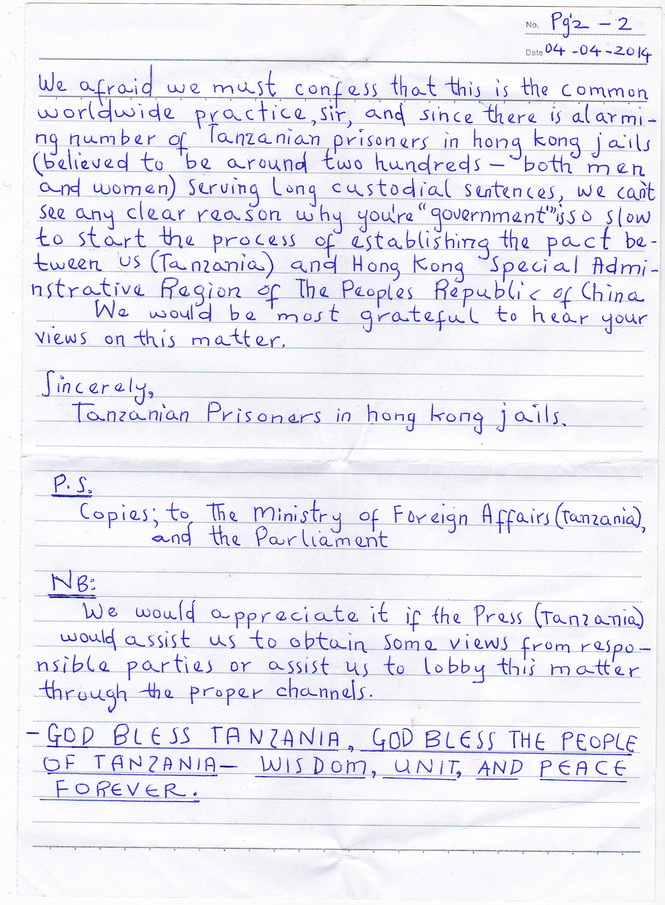 No. Pg'2 - 2
Date 04-04-2014
We afraid we must confess that this is the common
worldwide practice, sir, and since there is alarmi-
ng number of Tanzanian prisoners in hong kong jails
(believed to be around two hundreds — both men
and women) serving long custodial sentences, we can't
see any clear reason why you're "government" is so slow
to start the process of establishing the pact be-
tween us (Tanzania) and Hong Kong Special Admi-
nstrative Region of The Peoples Republic of China
We would be most grateful to hear your
views on this matter.
Sincerely,
Tanzanian Prisoners in hong kong jails.
P.S.
Copies; to The Ministry of Foreign Affairs (Tanzania),
and the Parliament
NB:
We would appreciate it if the Press (Tanzania)
would assist us to obtain some views from respo-
nsible parties or assist us to lobby this matter
through the proper channels.
- GOD BLESS TANZANIA, GOD BLESS THE PEOPLE
OF TANZANIA — WISDOM, UNIT, AND PEACE
FOREVER.